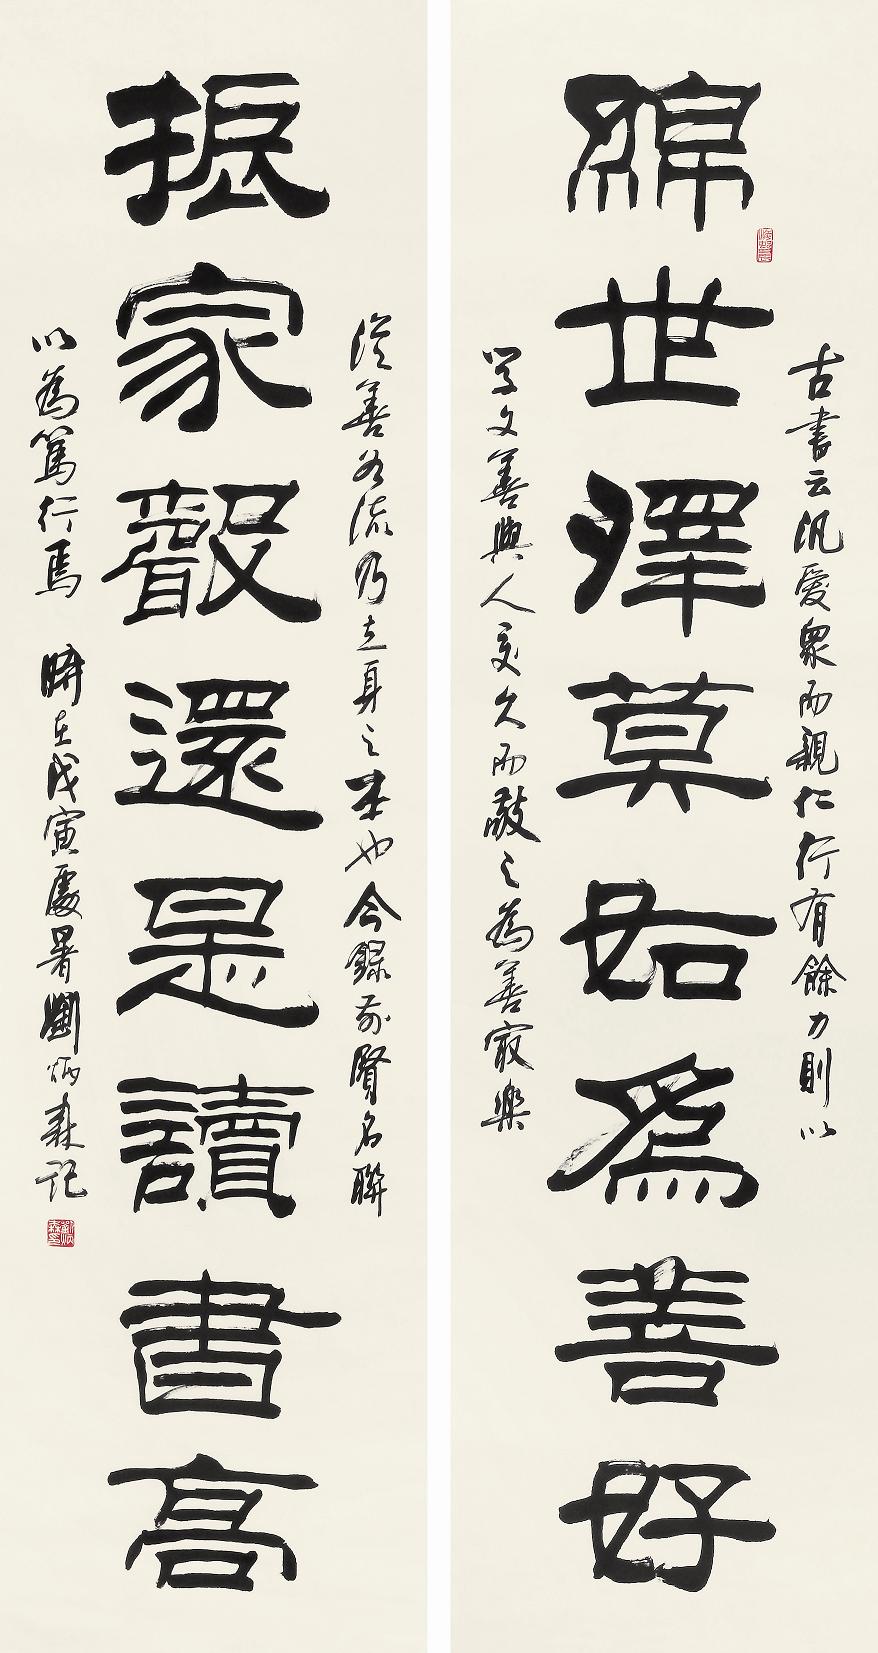 綿世澤莫如為善好
古書云汎愛眾而親仁行有餘力則以
學文善與人交久而敬之為善最樂
振家聲還是讀書高
從善如流乃立身之本也今錄前賢名聯
以為篤行焉 時在戊寅處暑劉炳森記